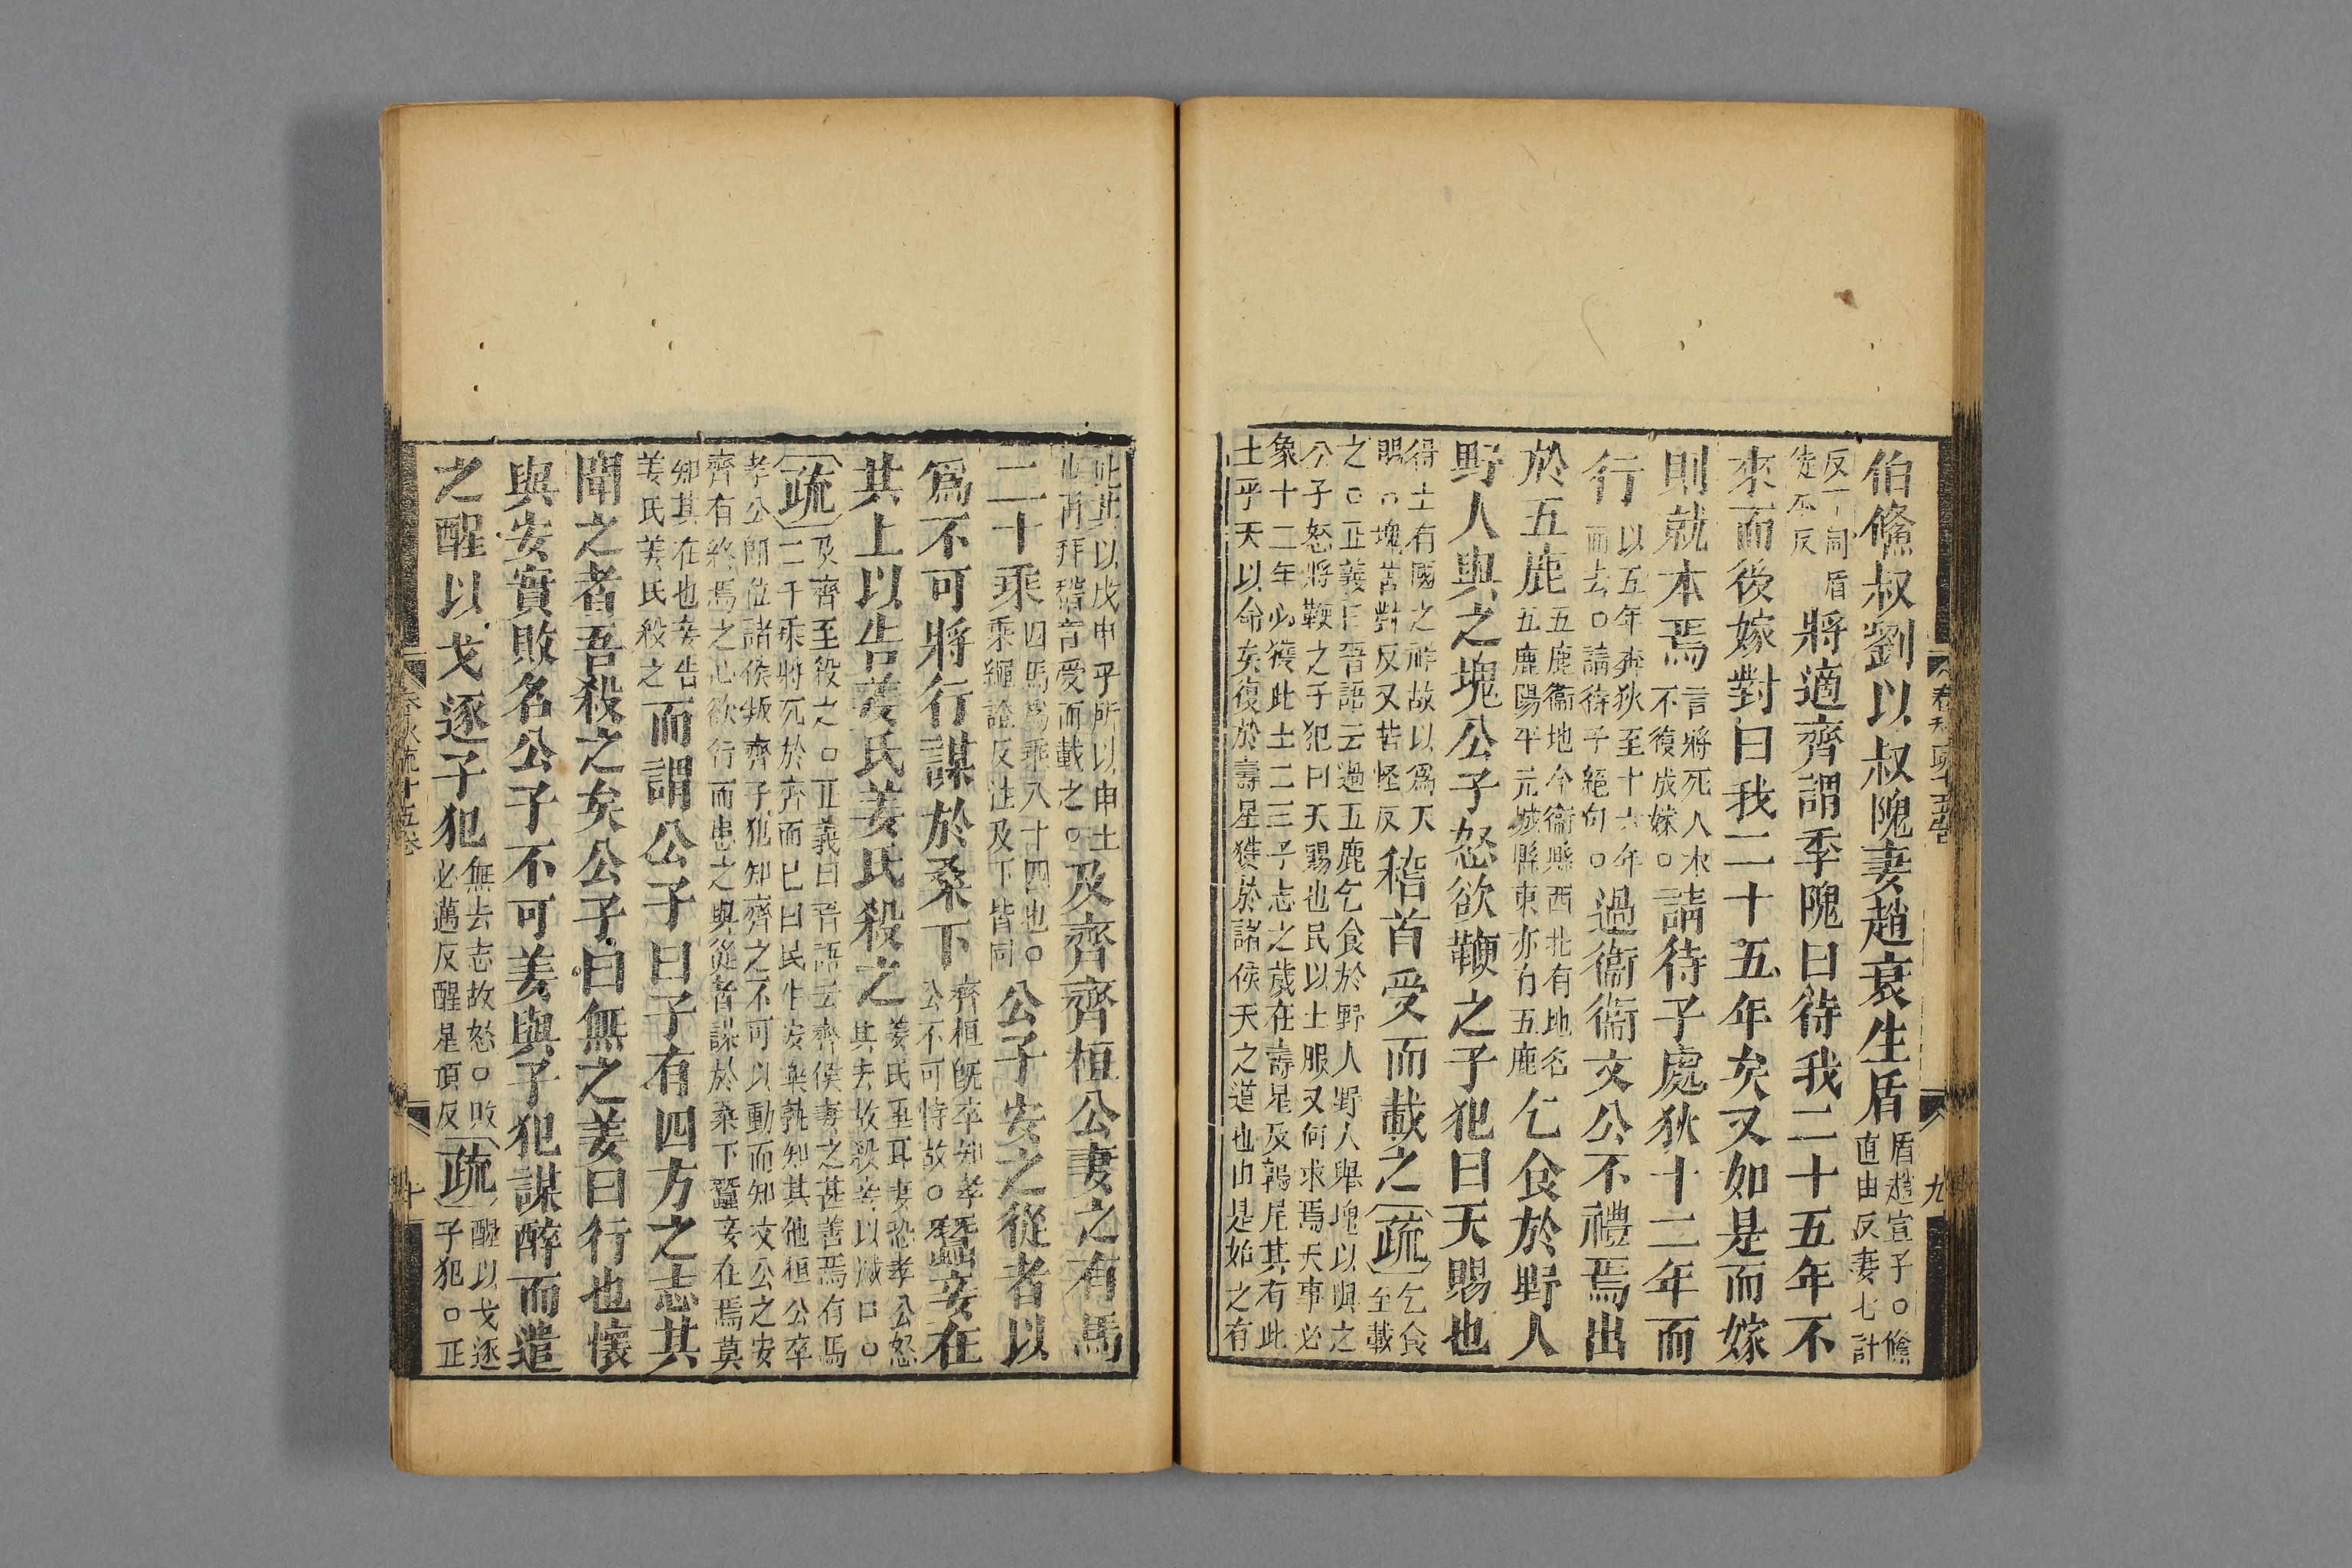 伯鯈叔劉以叔隗妻趙衰生盾盾趙宣子○鯈
直由反妻七計
反下同盾
徒本反將適齊謂季隗曰待我二十五年不
來而後嫁對曰我二十五年矣又如是而嫁
則就本焉言將死入木
不復成嫁○請待子處狄十二年而
行以五年奔狄至十六年
而去○請待子絕句○過衞衞文公不禮焉出
於五鹿五鹿衞地今衞縣西北有地名
五鹿陽平元城縣東亦有五鹿乞食於野人
野人與之塊公子怒欲鞭之子犯曰天賜也
得土有國之祥故以爲天
賜○塊苦對反又苦怪反稽首受而載之疏乞食
至載
之○正義曰晉語云過五鹿乞食於野人野人舉塊以與之
公子怒將鞭之子犯曰天賜也民以土服又何求焉天事必
象十二年必獲此土二三子志之歲在壽星及鶉尾其有此
土乎天以命矣復於壽星獲於諸侯天之道也由是始之有
春秋疏十五卷
九
此其以戊申乎所以申土
也再拜稽首受而載之○及齊齊桓公妻之有馬
二十乘四馬爲乘八十匹也○
乘繩證反注及下皆同公子安之從者以
爲不可將行謀於桑下齊桓旣卒知孝
公不可恃故○蠶妾在
其上以告姜氏姜氏殺之姜氏重耳妻恐孝公怒
其去故殺妾以滅口○
疏及齊至殺之○正義曰晉語云齊侯妻之甚善焉有馬
二十乘將死於齊而已曰民生安樂孰知其他桓公卒
孝公卽位諸侯叛齊子犯知齊之不可以動而知文公之安
齊有終焉之志欲行而患之與從者謀於桑下蠶妾在焉莫
知其在也妾告
姜氏姜氏殺之而謂公子曰子有四方之志其
聞之者吾殺之矣公子曰無之姜曰行也懷
與安實敗名公子不可姜與子犯謀醉而遣
之醒以戈逐子犯無去志故怒○敗
必邁反醒星頂反疏醒以戈逐
子犯○正
春秋疏十五卷
十